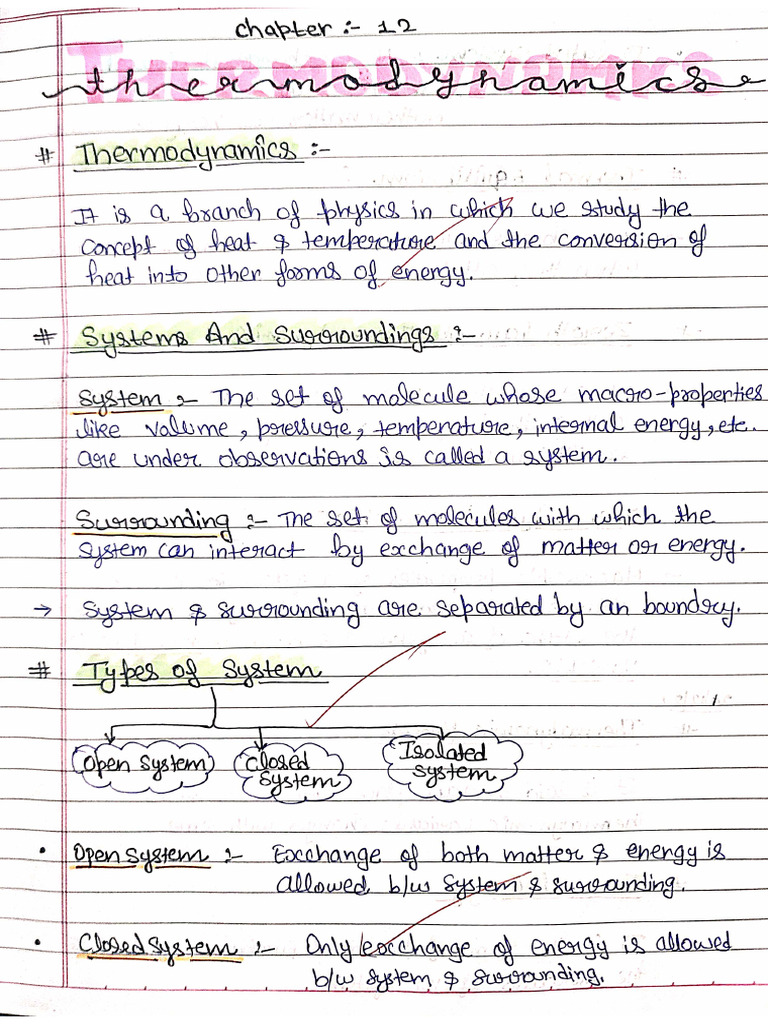 Chapter :- 12
THERMODYNAMICS
thermodynamics
# Thermodynamics :-
It is a branch of physics in which we study the
concept of heat & temperature and the conversion of
heat into other forms of energy.
# Systems And Surroundings :-
System :- The set of molecule whose macro-properties
like volume, pressure, temperature, internal energy, etc.
are under observations is called a system.
Surrounding :- The set of molecules with which the
system can interact by exchange of matter or energy.
→ System & surrounding are separated by an boundry.
# Types of System
Open System
Closed
System
Isolated
System
• Open System :- Exchange of both matter & energy is
allowed b/w System & surrounding.
• Closed System :- Only exchange of energy is allowed
b/w system & surrounding.